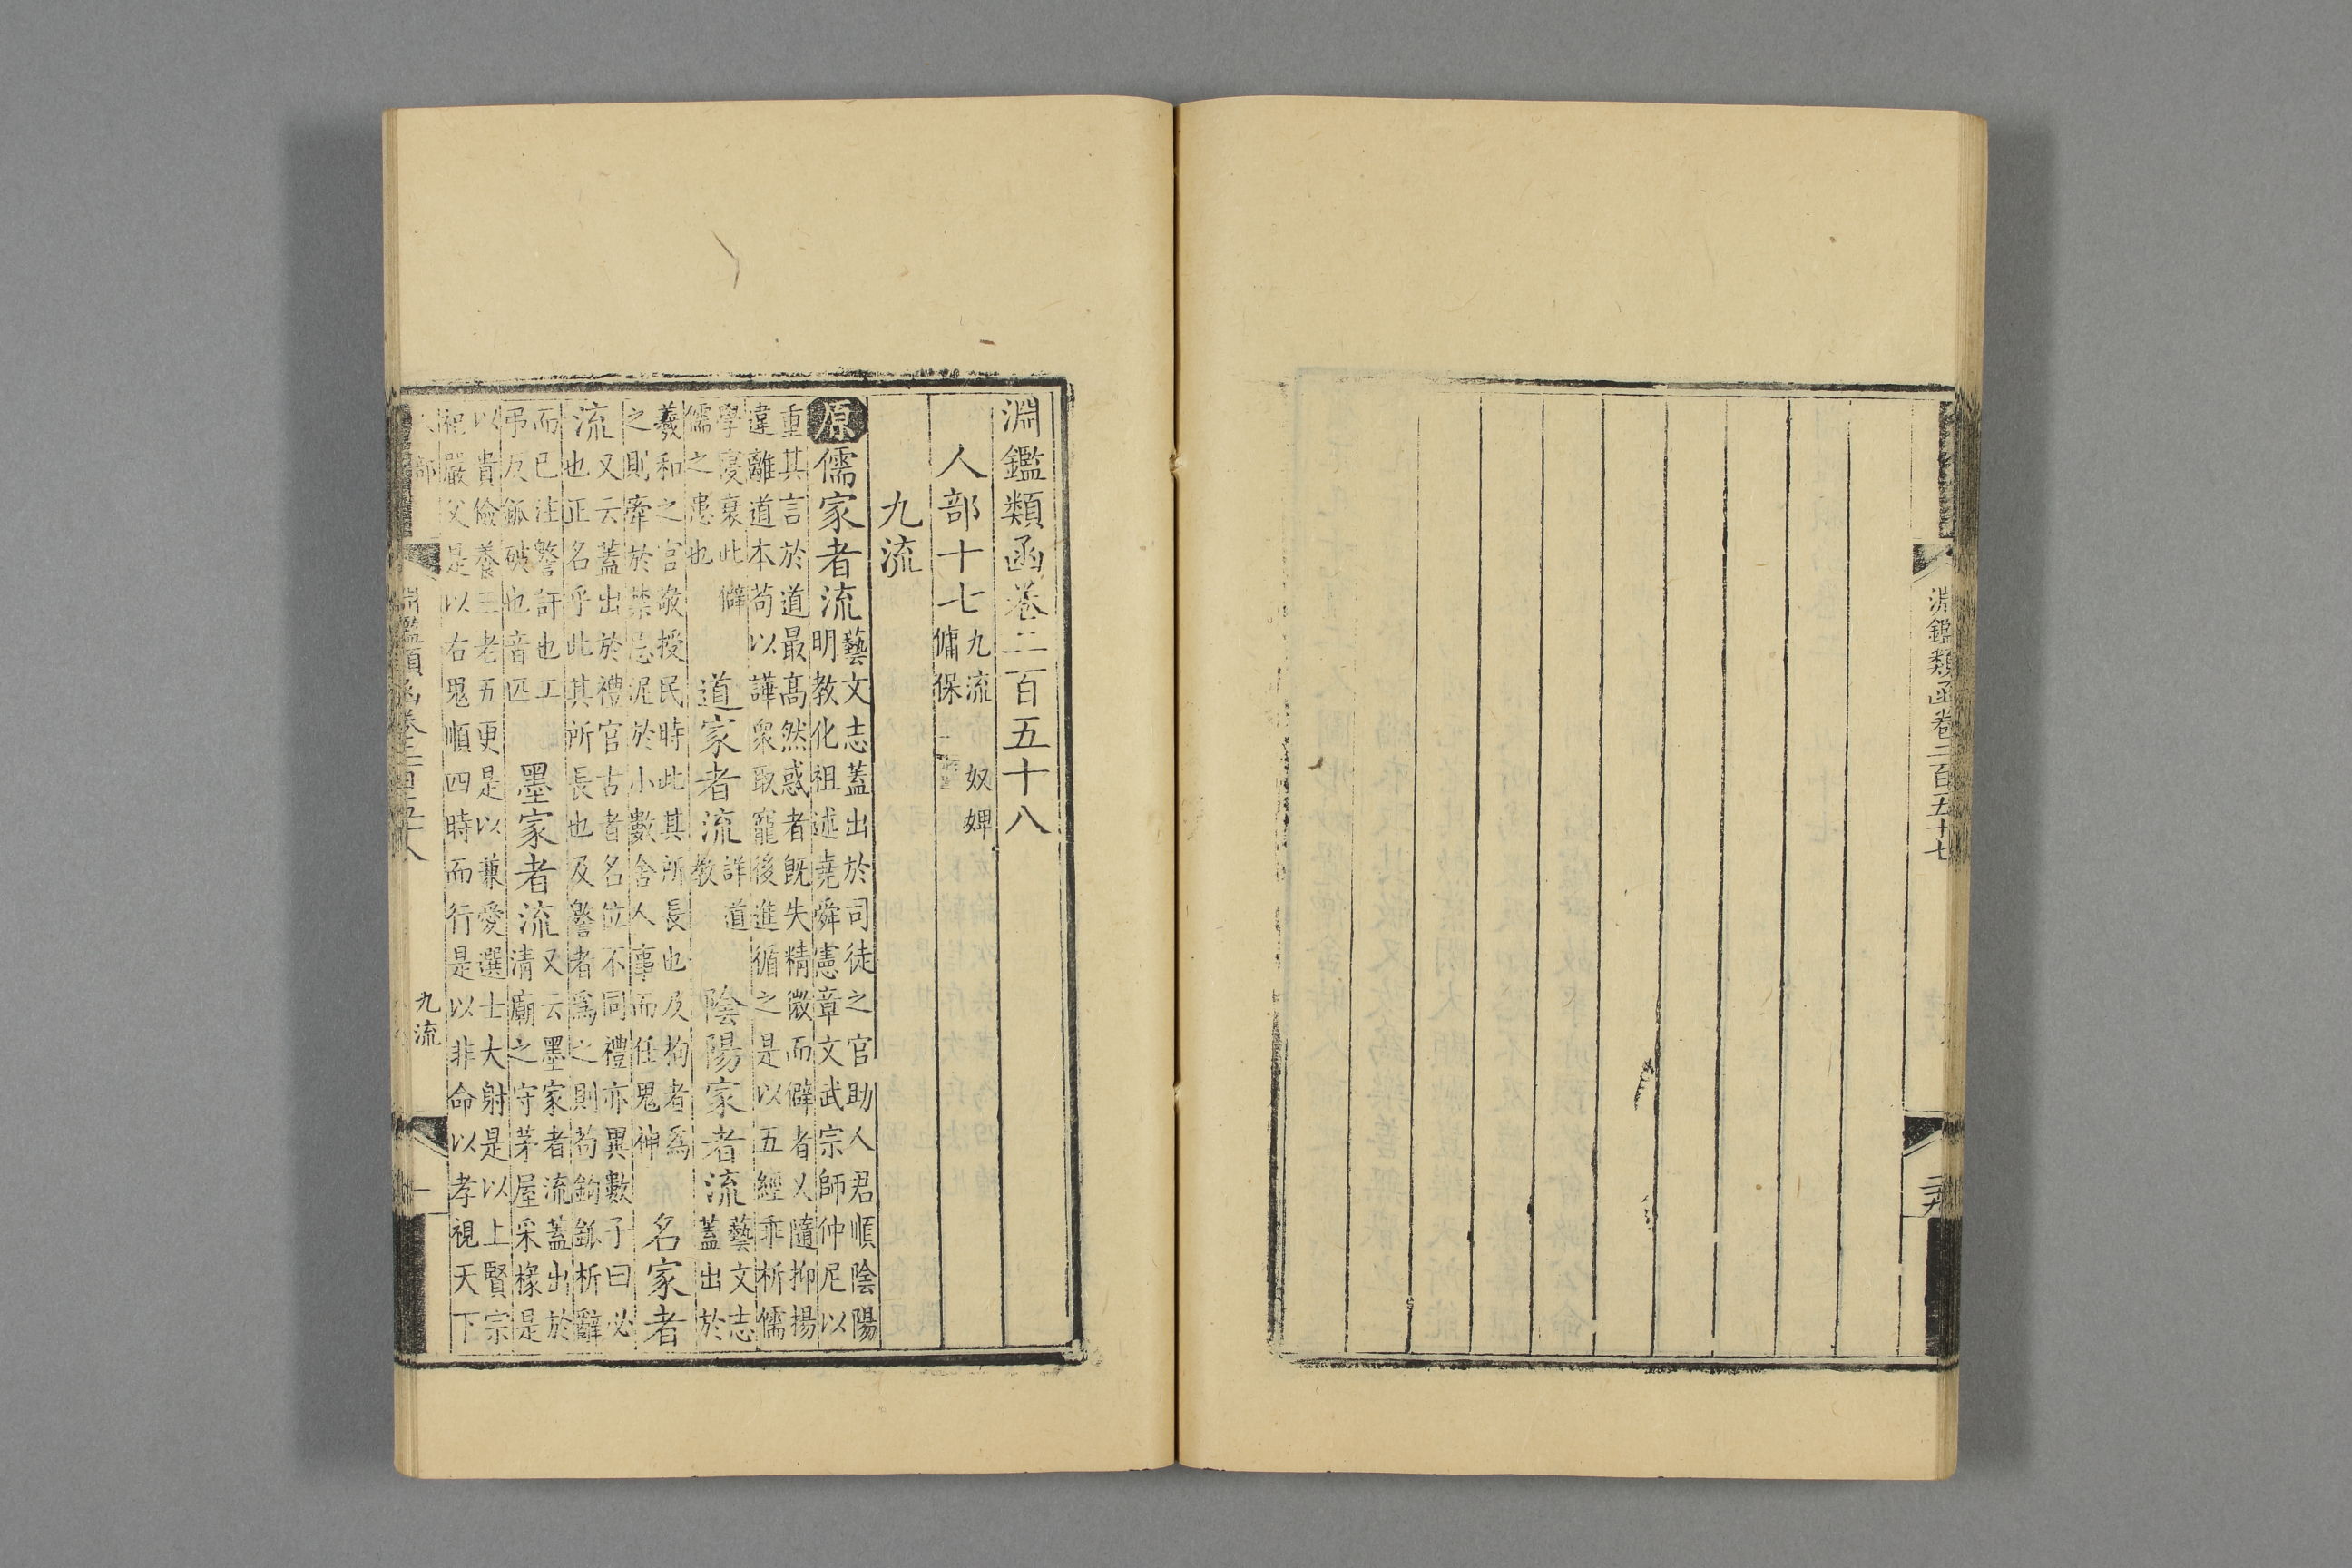 淵鑑類函卷二百五十七
淵鑑類函卷二百五十八
人部十七 九流 奴婢
傭保
九流
原儒家者流 藝文志蓋出於司徒之官助人君順陰陽
明教化祖述堯舜憲章文武宗師仲尼以
重其言於道最高然惑者既失精微而僻者乂隨抑揚
違離道本苟以譁衆取寵後進循之是以五經乖析儒
學寖衰此僻
儒之患也
道家者流 詳道
教
陰陽家者流 藝文志
蓋出於
羲和之官敬授民時此其所長也及拘者爲
之則牽於禁忌泥於小數舍人事而任鬼神
名家者
流 又云蓋出於禮官古者名位不同禮亦異數子曰必
也正名乎此其所長也及警者爲之則苟鉤鈲析辭
而已注警訐也工
弔反鈲破也音匹
墨家者流 又云墨家者流蓋出於
清廟之守茅屋采椽是
以貴儉養三老五更是以兼愛選士大射是以上賢宗
祀嚴父是以右鬼順四時而行是以非命以孝視天下
人部
淵鑑類函卷二百五十八
九流
一